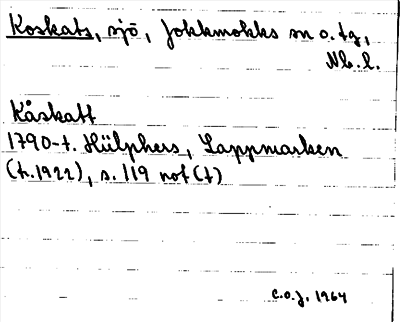 Koskats, sjö, Jokkmokks sn o. tg,
Nb. l.
Kåskatt
1790-t. Hülphers, Lappmarken
(tr. 1922), s. 119 not (t)
C.O.J. 1964